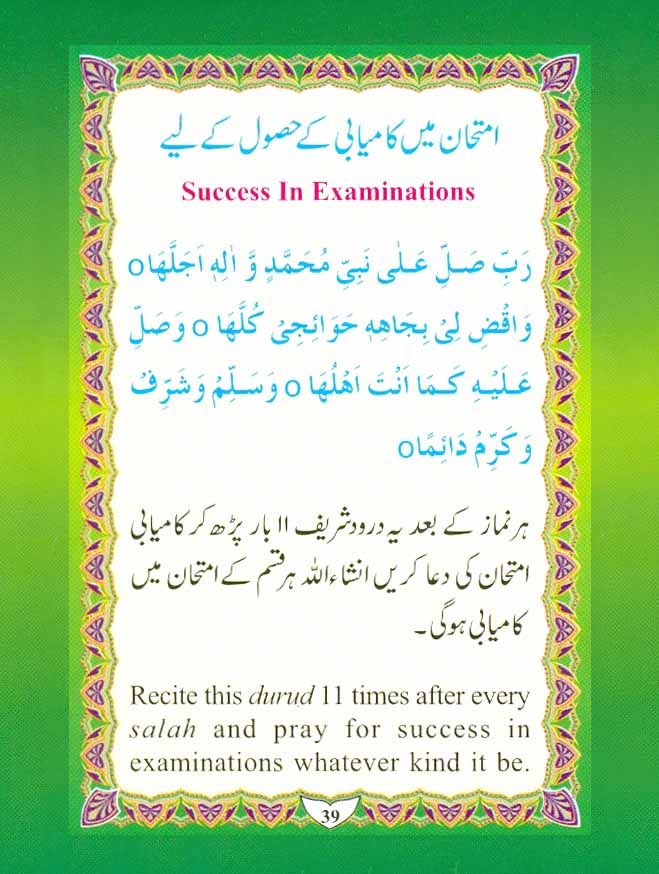 امتحان میں کامیابی کے حصول کے لیے
Success In Examinations
رَبِّ صَلِّ عَلٰی نَبِیِّ مُحَمَّدٍ وَّ اٰلِہٖ اَجَلَّھَاo
وَاقْضِ لِیْ بِجَاھِہٖ حَوَائِجِیْ کُلَّھَا o وَصَلِّ
عَلَیْہِ کَمَا اَنْتَ اَھْلُھَا o وَسَلِّمْ وَشَرِّفْ
وَکَرِّمْ دَائِمًاo
ہر نماز کے بعد یہ درود شریف ۱۱ بار پڑھ کر کامیابی
امتحان کی دعا کریں انشاءاللہ ہر قسم کے امتحان میں
کامیابی ہوگی۔
Recite this duruḍ 11 times after every
salah and pray for success in
examinations whatever kind it be.
39